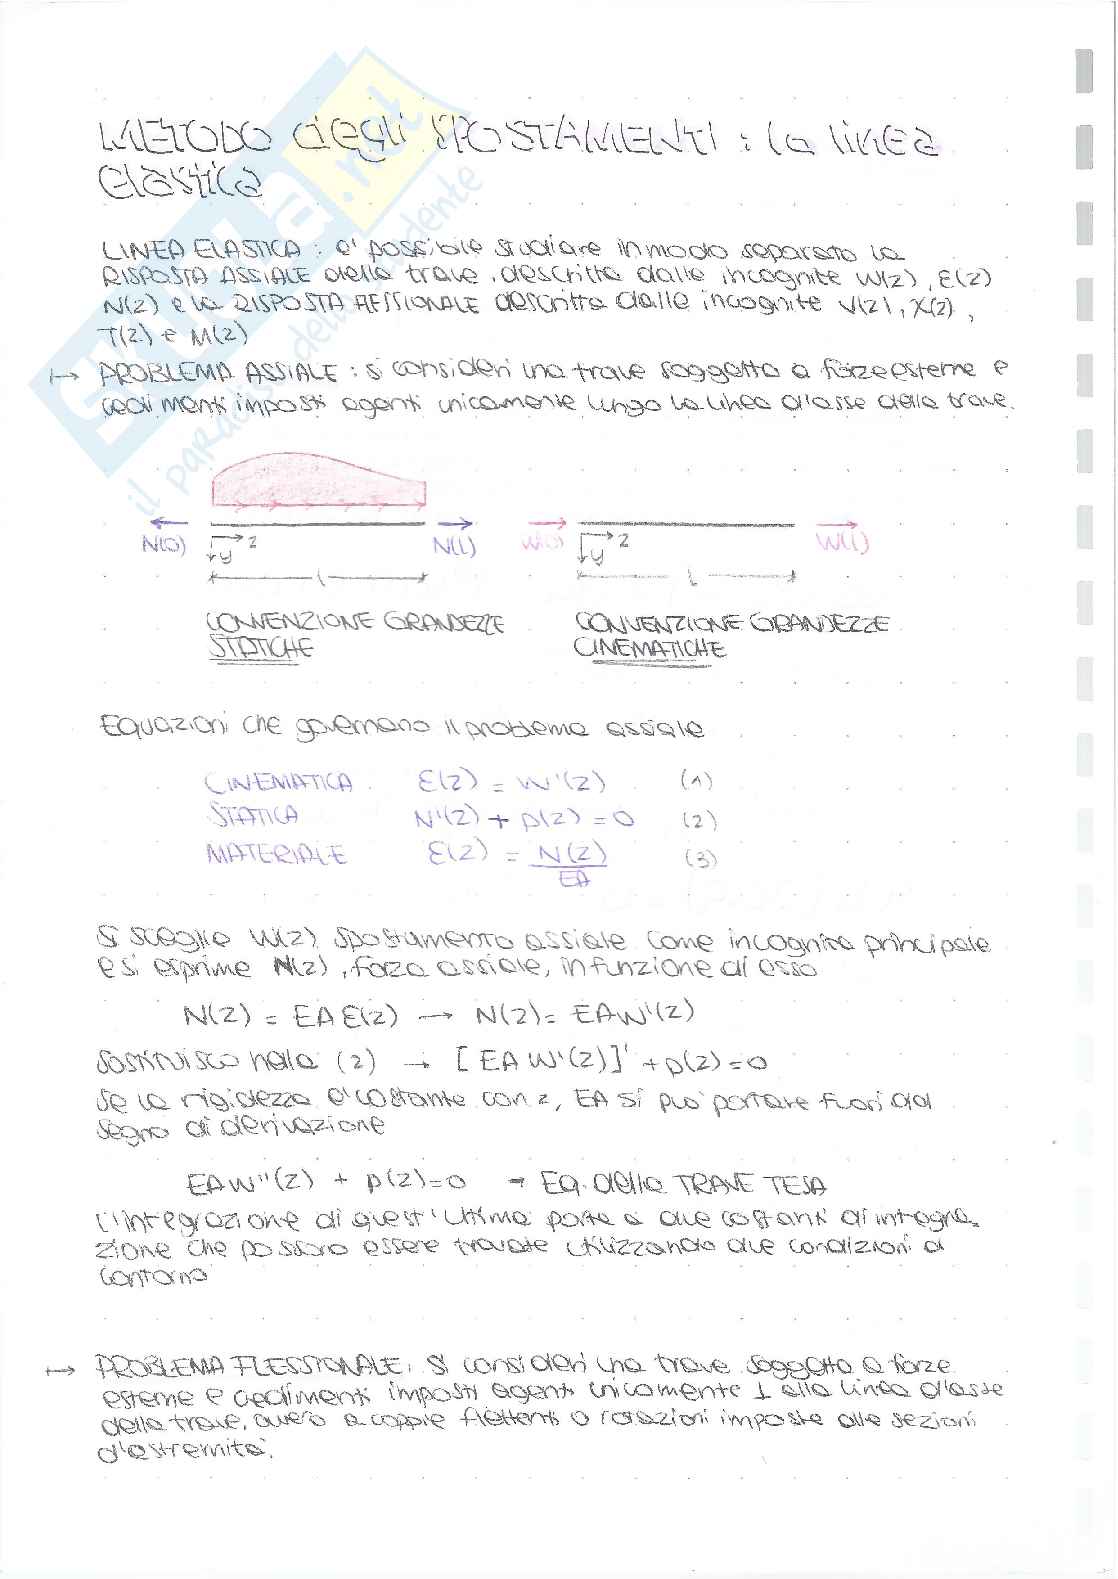 METODO degli SPOSTAMENTI : la linea
elastica
LINEA ELASTICA : e' possibile studiare in modo separato la
RISPOSTA ASSIALE della trave, descritta dalle incognite W(z), ε(z)
N(z) e la RISPOSTA FLESSIONALE descritta dalle incognite V(z), X(z),
T(z) e M(z)
↦ PROBLEMA ASSIALE : si consideri una trave soggetta a forze esterne e
cedimenti imposti agenti unicamente lungo la linea d'asse della trave.
N(0) z y N(L) W(0) z y W(L)
L L
CONVENZIONE GRANDEZZE CONVENZIONE GRANDEZZE
STATICHE CINEMATICHE
Equazioni che governano il problema assiale
CINEMATICA ε(z) = W'(z) (1)
STATICA N'(z) + p(z) = 0 (2)
MATERIALE ε(z) = N(z) (3)
EA
Si sceglie W(z) spostamento assiale come incognita principale
e si esprime N(z), forza assiale, in funzione di esso
N(z) = EA ε(z) → N(z) = EAW'(z)
Sostituisco nella (2) → [EA W'(z)]' + p(z) = 0
Se la rigidezza e' costante con z, EA si può portare fuori dal
segno di derivazione
EAW''(z) + p(z) = 0 → Eq. della TRAVE TESA
L'integrazione di quest'ultima porta a due costanti di integra-
zione che possono essere trovate utilizzando due condizioni al
contorno
↦ PROBLEMA FLESSIONALE : si consideri una trave soggetta a forze
esterne e cedimenti imposti agenti unicamente ⊥ alla linea d'asse
della trave, ovvero a coppie flettenti o rotazioni imposte alle sezioni
d'estremità.
SKUola.net
il paradiso dello studente